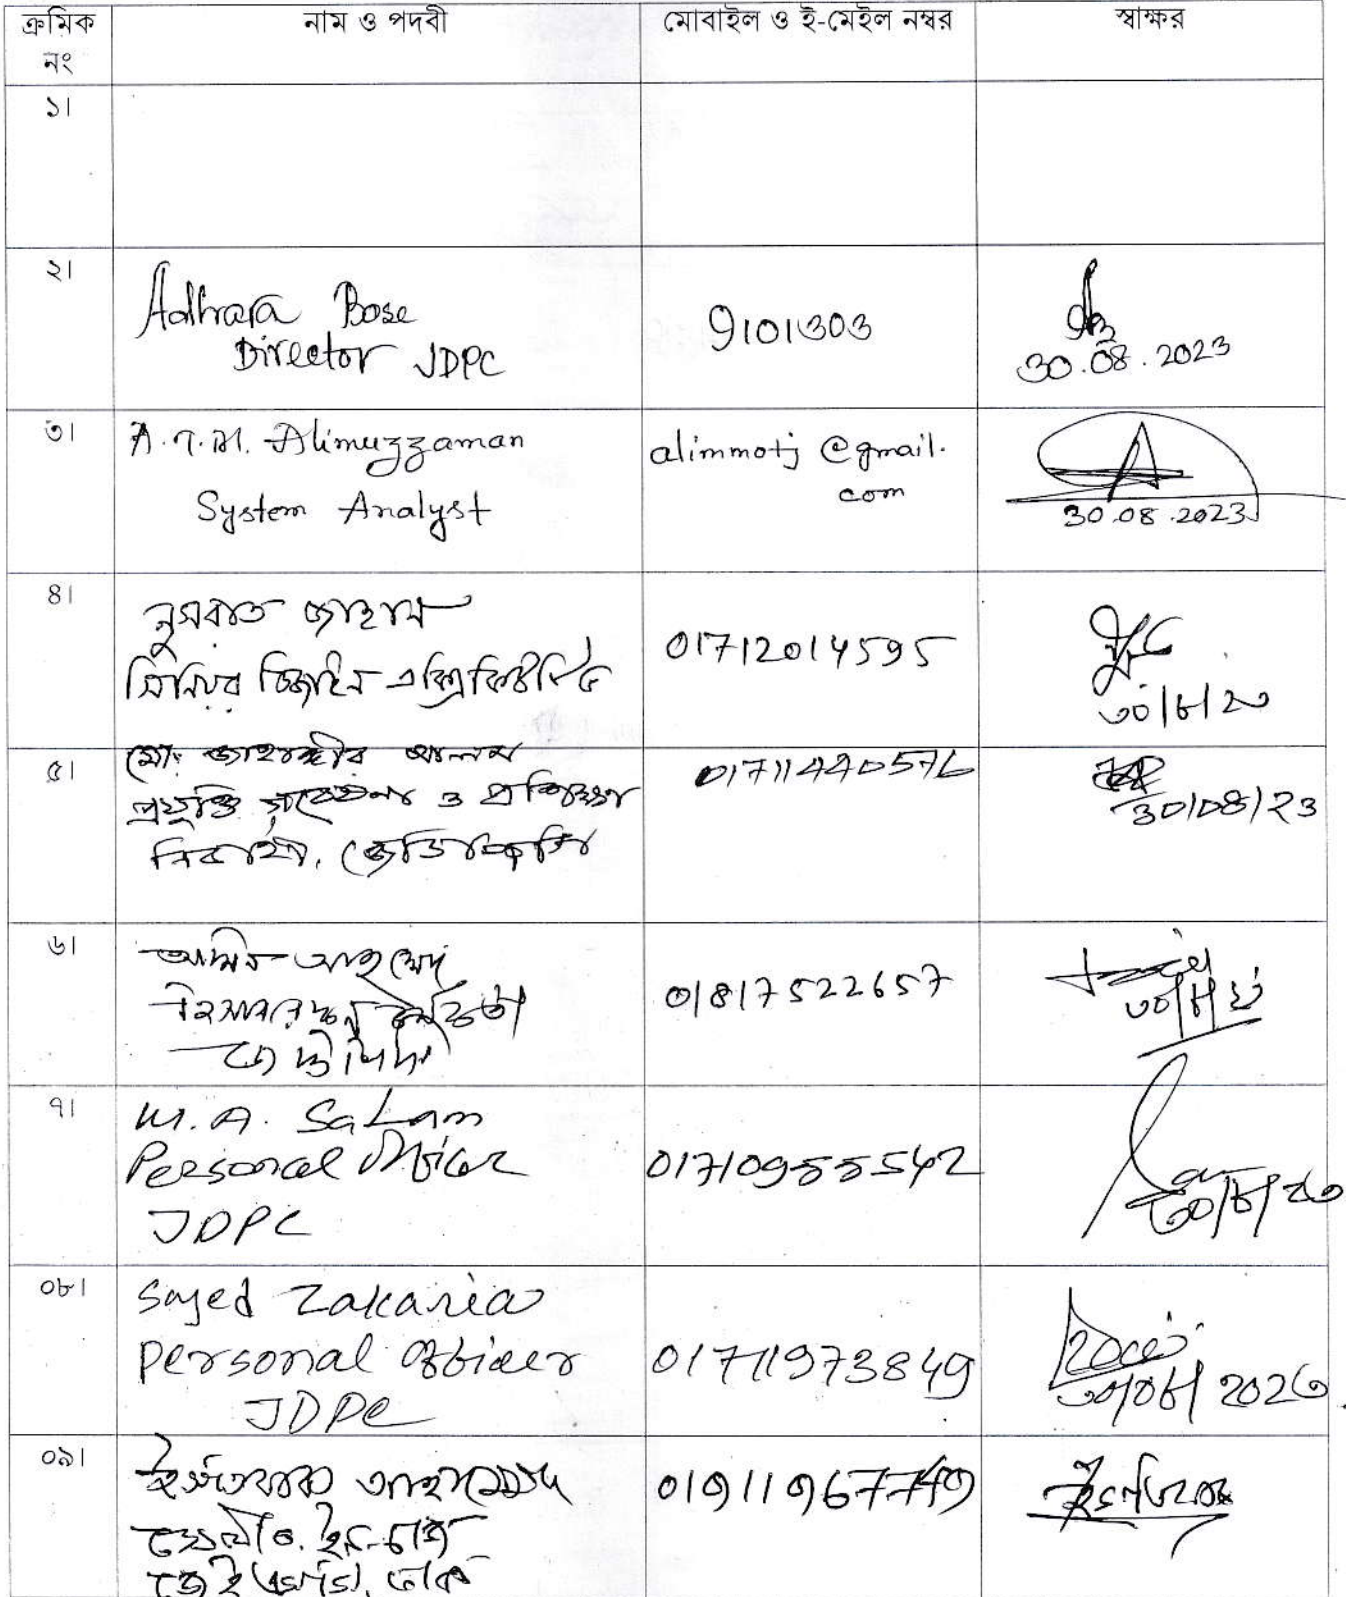 ক্রমিক নং
নাম ও পদবী
মোবাইল ও ই-মেইল নম্বর
স্বাক্ষর
১।
২।
Adhara Bose
Director JDPC
9101303
30.08.2023
৩।
A.T.M. Alimuzzaman
System Analyst
alimmotj@gmail.
com
30.08.2023
৪।
নুসরাত জাহান
সিনিয়র ডিজাইন
01712014595
৩০/৮/২৩
৫।
মোঃ জাহাঙ্গীর আলম
প্রযুক্তি ও প্রশিক্ষণ
নির্বাহী, জেডিপিসি
01711440576
30/08/23
৬।
আমিন আহমেদ
জেডিপিসি
01817522657
৭।
M.A. Salam
Personal Officer
JDPC
01710955542
৩০/৮/২৩
০৮।
Sayed Zakaria
Personal Officer
JDPC
01711973849
০৯।
ইশতিয়াক আহমেদ